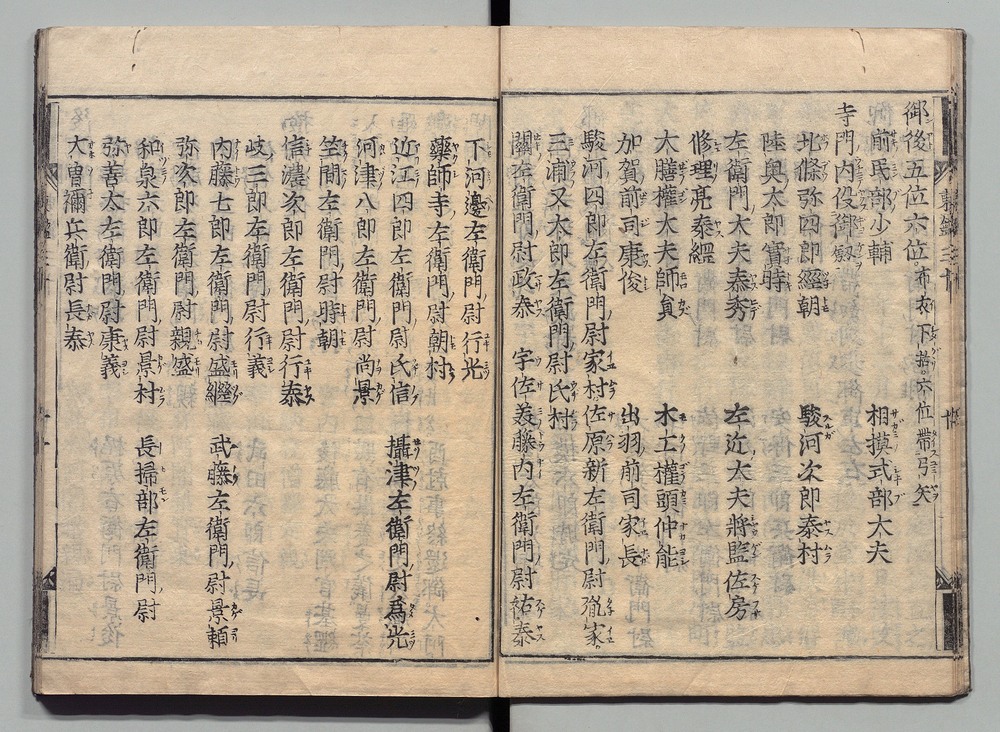 御後五位六位布衣下括六位帶弓矢
前民部少輔　相摸式部大夫
寺門内役御劔
北條弥四郎經朝　駿河次郎泰村
陸奥太郎實時
左衛門大夫泰秀　左近大夫將監佐房
修理亮泰綱
大膳權大夫師員　木工權頭仲能
加賀前司康俊　出羽前司家長
駿河四郎左衛門尉家村　佐原新左衛門尉胤家
三浦又太郎左衛門尉氏村
關左衛門尉政泰　宇佐美藤内左衛門尉祐泰
下河邊左衛門尉行光
藥師寺左衛門尉朝村
近江四郎左衛門尉氏信　攝津左衛門尉爲光
河津八郎左衛門尉尚景
笠間左衛門尉時朝
信濃次郎左衛門尉行泰
岐三郎左衛門尉行義
内藤七郎左衛門尉盛繼　武藤左衛門尉景頼
弥次郎左衛門尉親盛
和泉六郎左衛門尉景村　長掃部左衛門尉
弥善太左衛門尉康義
大曽禰兵衛尉長泰